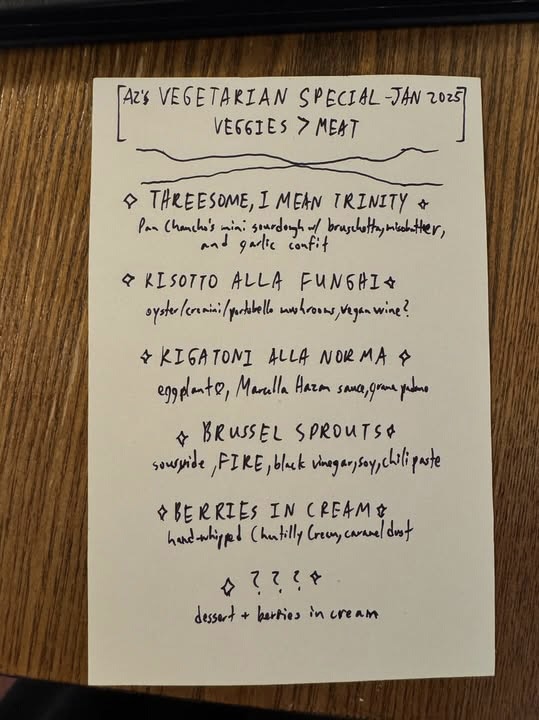 [AZ's VEGETARIAN SPECIAL - JAN 2025]
VEGGIES > MEAT
THREESOME, I MEAN TRINITY
Pan Chancho's mini sourdough w/ bruschetta, misobutter,
and garlic confit
RISOTTO ALLA FUNGHI
oyster/cremini/portobello mushrooms, vegan wine?
RIGATONI ALLA NORMA
eggplant♡, Marcella Hazan sauce, grana padano
BRUSSEL SPROUTS
sousvide, FIRE, black vinegar, soy, chili paste
BERRIES IN CREAM
hand-whipped Chantilly Cream, caramel dust
? ? ?
dessert + berries in cream